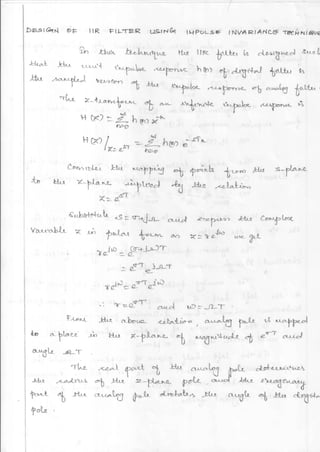 DESIGN OF IIR FILTER USING IMPULSE INVARIANCE TECHNIQUE
In this technique the IIR filter is designed such
that the unit impulse response h(n) of digital filter is
the sampled version of the impulse response of analog filter
The z-transform of an infinite impulse response is
H(z) = ∞Σn=0 h(n) z⁻ⁿ
H(z)/z=e^sT = ∞Σn=0 h(n) e^-sTn
Consider the mapping of points from the s-plane
to the z-plane implied by the relation
z = e^sT
Substitute s = σ+jΩ and express the complex
variable z in polar form as z = re^jω we get
re^jω = e^(σ+jΩ)T
= e^σT e^jΩT
re^jω = e^σT e^jω
∴ r = e^σT and ω = ΩT
From the above relation, analog pole is mapped
to a place in the z-plane of magnitude of e^σT and
angle ΩT
The real part of the analog pole determines
the radius of the z-plane pole and the imaginary
part of the analog pole dictates the angle of the digital
pole.